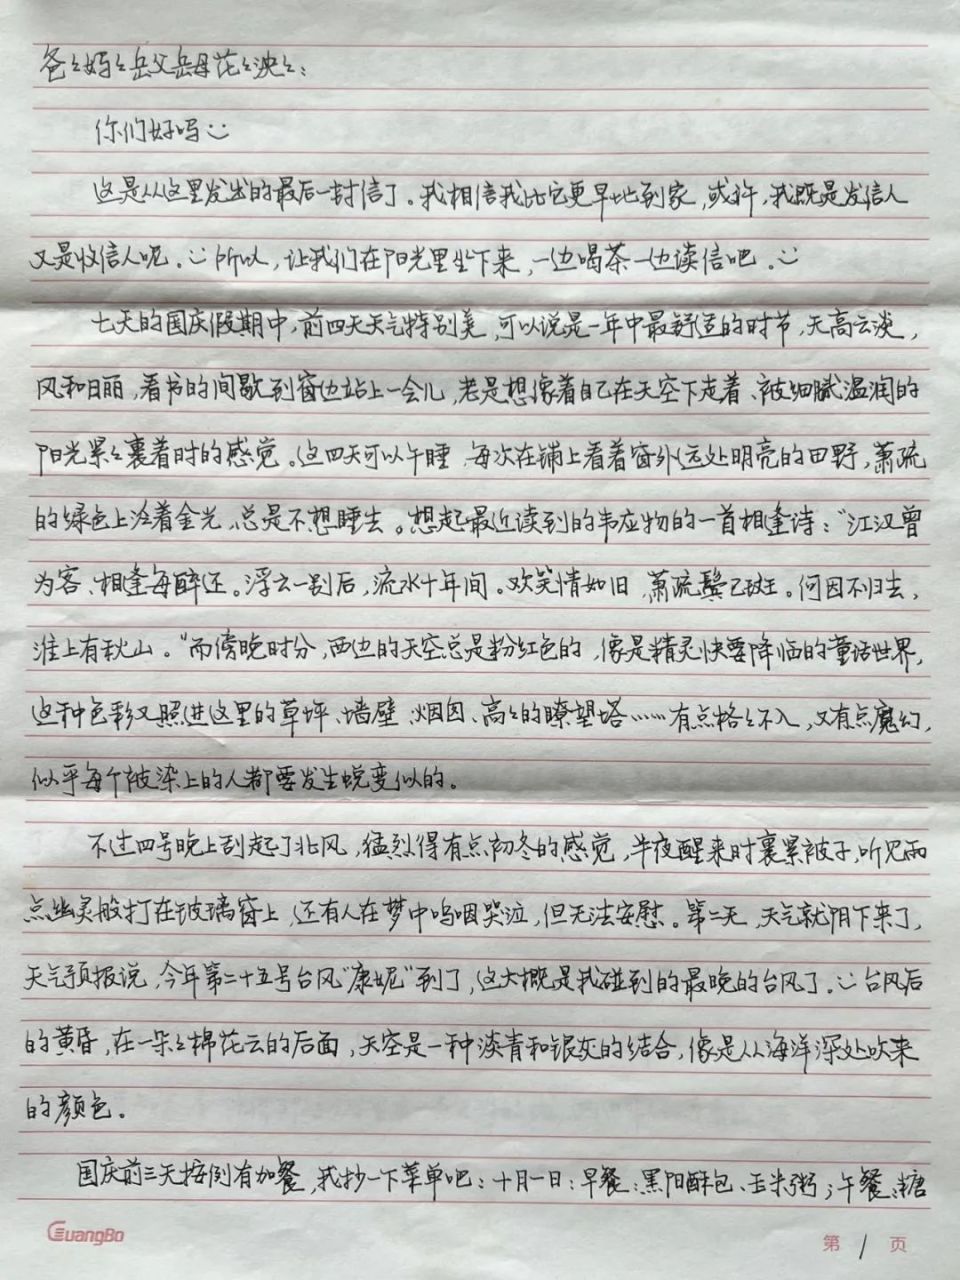 爸々妈々岳父岳母花々泱々:
你们好吗
这是从这里发出的最后一封信了。我相信我比它更早地到家,或许,我既是发信人
又是收信人呢。所以,让我们在阳光里坐下来,一边喝茶一边读信吧。
七天的国庆假期中,前四天天气特别美,可以说是一年中最舒适的时节,天高云淡,
风和日丽,看书的间歇到窗边站上一会儿,老是想像着自己在天空下走着、被细腻温润的
阳光累々裹着时的感觉。这四天可以午睡,每次在铺上看着窗外远处明亮的田野,萧疏
的绿色上淦着金光,总是不想睡去。想起最近读到的韦应物的一首相逢诗:“江汉曾
为客、相逢每醉还。浮云一别后,流水十年间。欢笑情如旧,萧疏鬓已斑。何因不归去,
淮上有秋山。”而傍晚时分,西边的天空总是粉红色的,像是精灵快要降临的童话世界,
这种色彩又照进这里的草坪、墙壁、烟囱、高々的瞭望塔……有点格々不入,又有点魔幻,
似乎每个被染上的人都要发生蜕变似的。
不过四号晚上刮起了北风,猛烈得有点初冬的感觉,半夜醒来时裹紧被子,听见雨
点幽灵般打在玻璃窗上,还有人在梦中呜咽哭泣,但无法安慰。第二天,天气就阴下来了,
天气预报说,今年第二十五号台风“康妮”到了,这大概是我碰到的最晚的台风了。台风后
的黄昏,在一朵々棉花云的后面,天空是一种淡青和银灰的结合,像是从海洋深处吹来
的颜色。
国庆前三天按例有加餐,我抄一下菜单吧:十月一日:早餐:黑阳酥包、玉米粥;午餐:糖
GuangBo
第 1 页